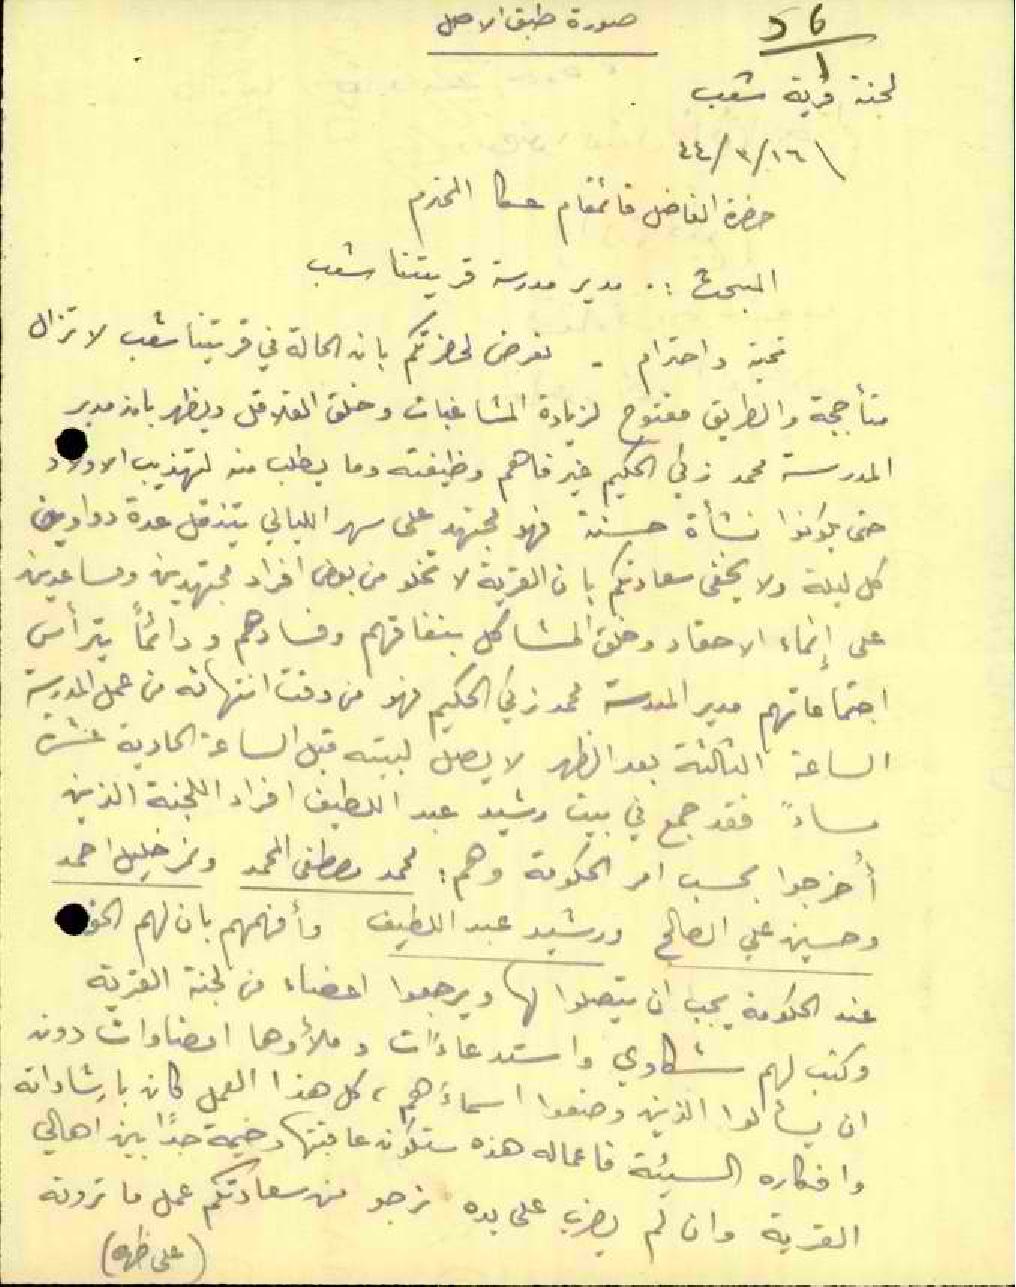 صورة طبق الاصل
56
1
لجنة قرية شعب
١٦/٣/٤٤
حضرة الفاضل قائمقام عكا المحترم
المبحث :. مدير مدرسة قريتنا شعب
تحية واحترام - نعرض لحضرتكم بان الحالة في قريتنا شعب لا تزال
متأججة والطريق مفتوح لزيادة المشاغبات وخلق القلاقل ويظهر بان مدير
المدرسة محمد زكي الحكيم غير فاهم وظيفته وما يطلب منه لتهذيب الاولاد
حتى يكونوا نشأة حسنة فهو مجتهد على سهر الليالي يتنقل عدة دواوين
كل ليلة ولا يخفى سعادتكم بان القرية لا تخلو من بعض افراد مجتهدين ومساعدين
على إنماء الاحقاد وخلق المشاكل بنفاقهم وفسادهم ودائماً يترأس
اجتماعاتهم مدير المدرسة محمد زكي الحكيم فهو من وقت انتهائه من عمل المدرسة
الساعة الثالثة بعد الظهر لا يصل لبيته قبل الساعة الحادية عشرة
مساءً فقد جمع في بيت رشيد عبد اللطيف افراد اللجنة الذين
أخرجوا بحسب امر الحكومة وهم: محمد مصطفى المحمد ونمر خليل احمد
وحسين علي الصالح ورشيد عبد اللطيف وأفهمهم بان لهم الحق
عند الحكومة يجب ان يتصلوا لها ويرجعوا اعضاء من لجنة القرية
وكتب لهم شكاوي واستدعاءات وملأوها امضاوات دون
ان يسألوا الذين وضعوا اسماءهم، كل هذا العمل كان بارشاداته
وافكاره السيئة فاعماله هذه ستكون عاقبتها وخيمة جدًا بين اهالي
القرية وان لم يضرب على يده نرجو من سعادتكم عمل ما ترونه
(على ظهره)